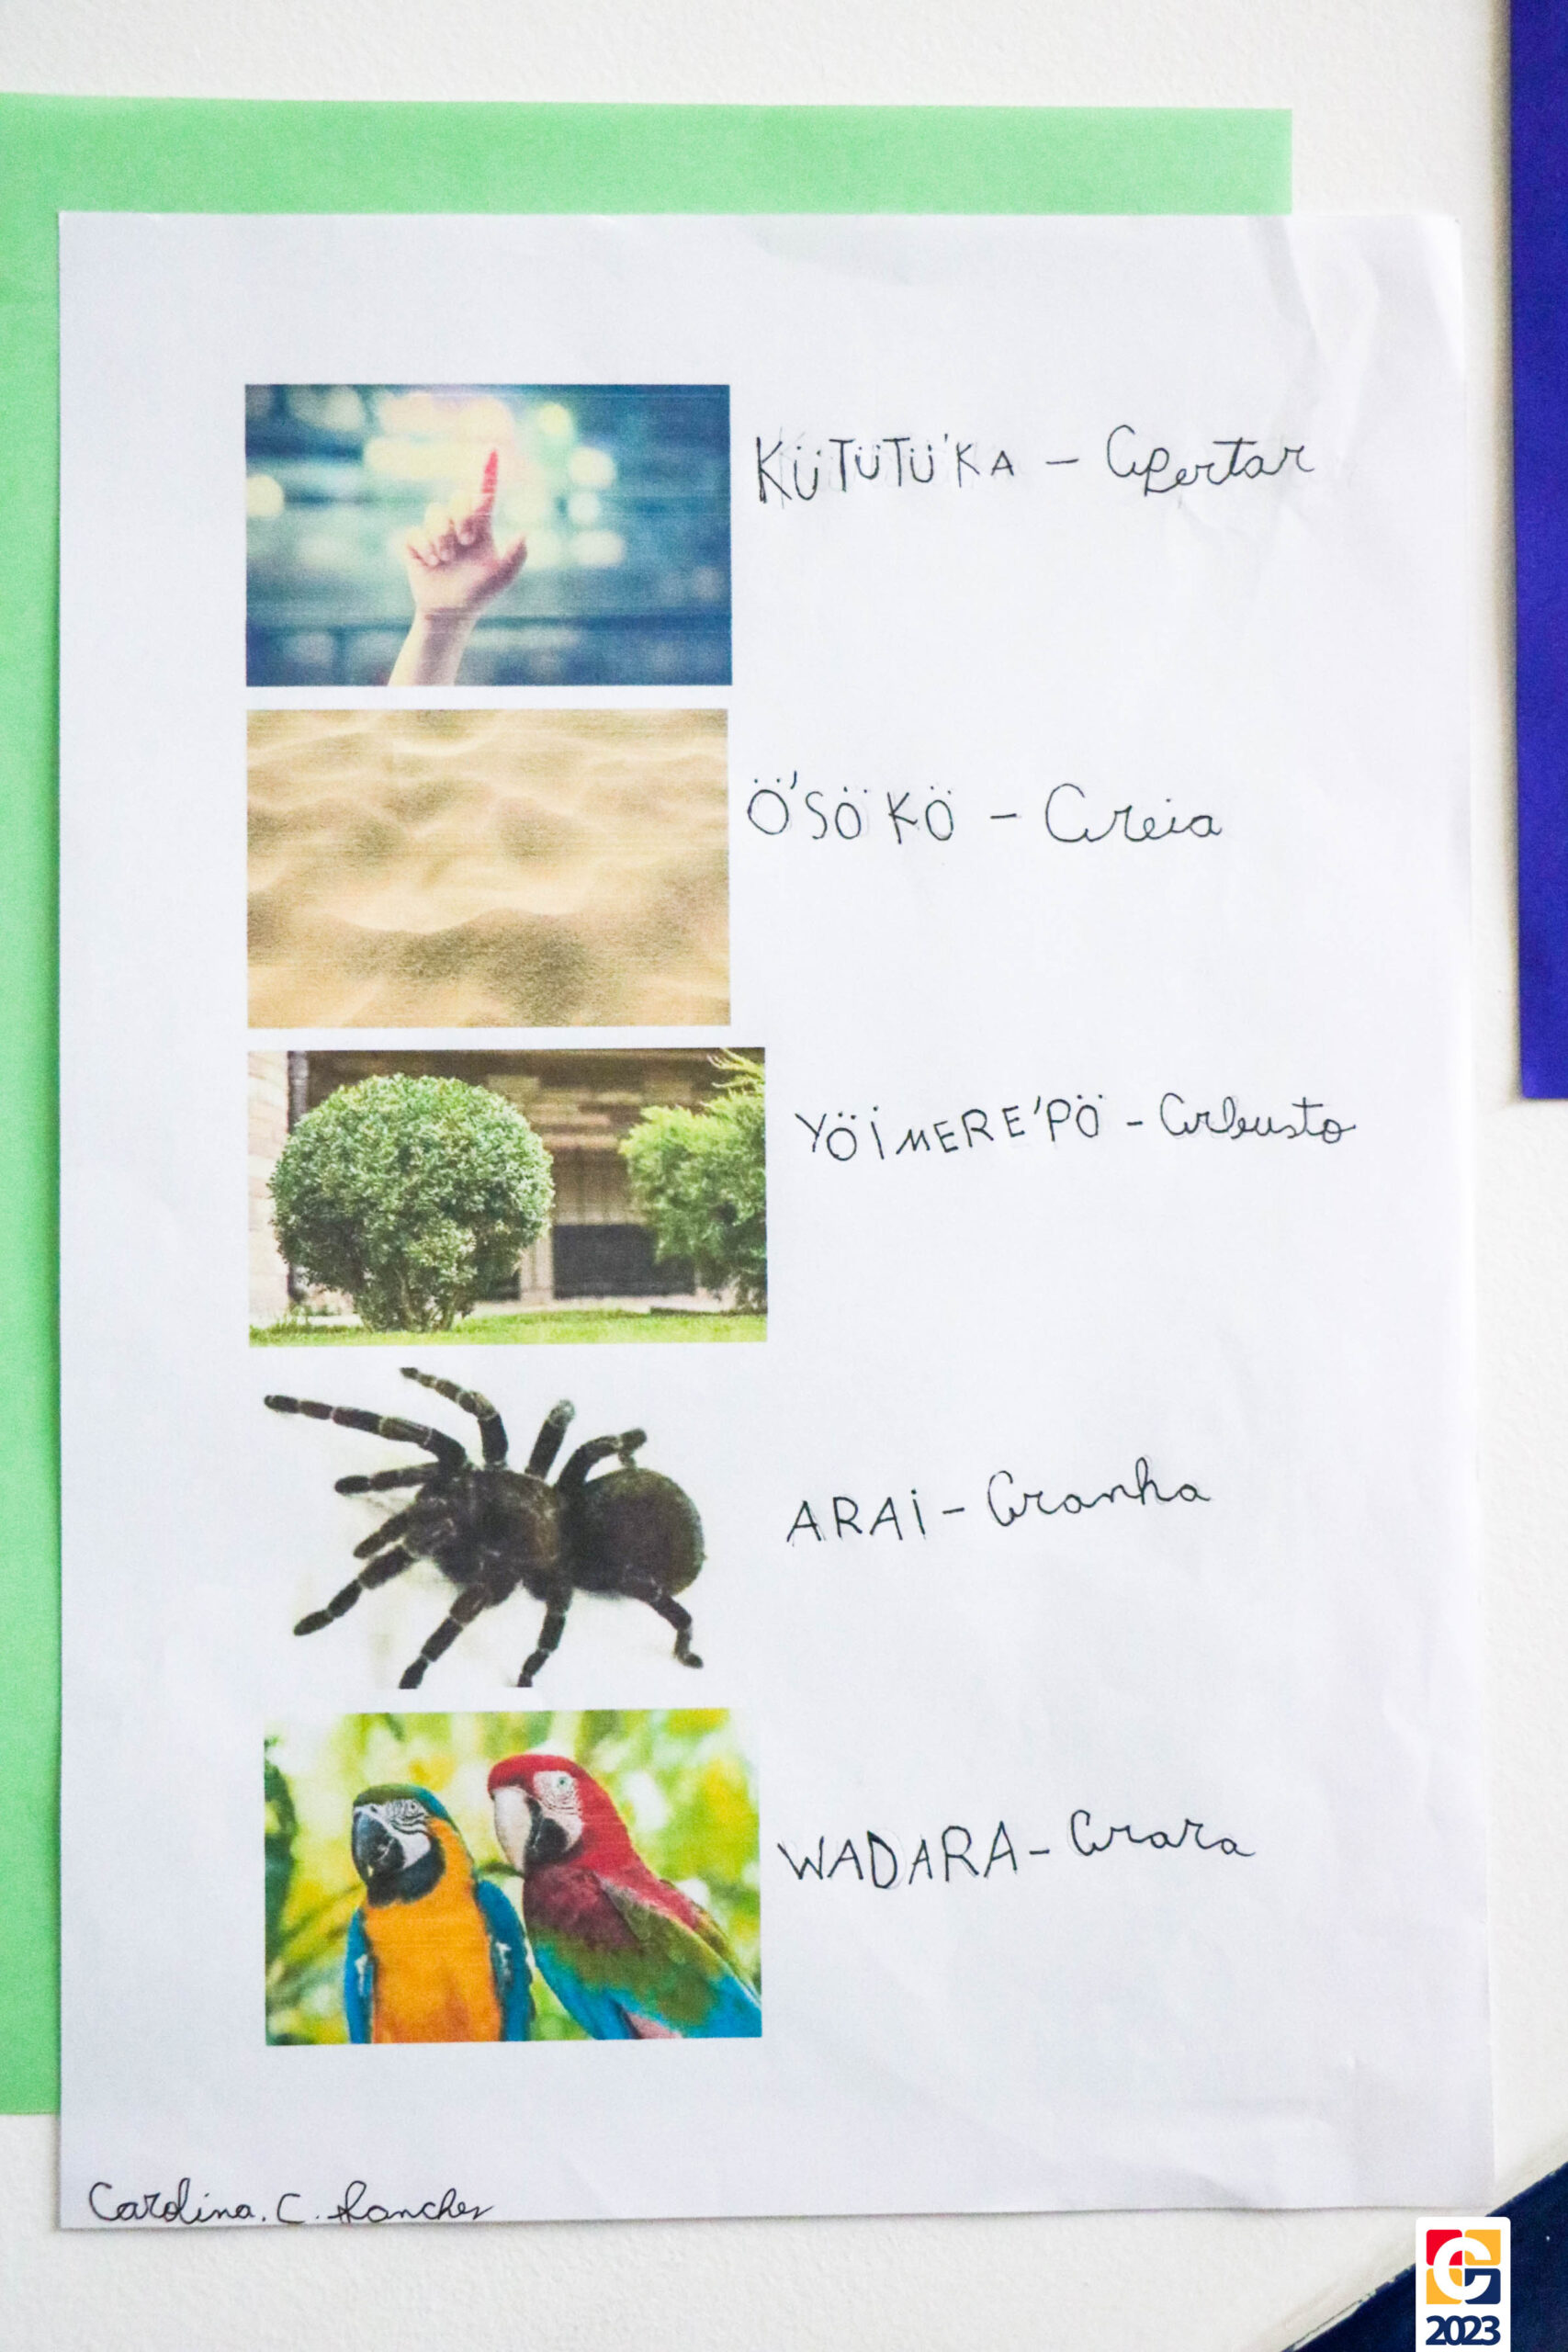 KÜTÜTÜ'KA – Apertar
Ö'SÖKÖ – Areia
YÖIMERE'PÖ – Arbusto
ARAI – Aranha
WADARA – Arara
Carolina. C. Sanches
2023